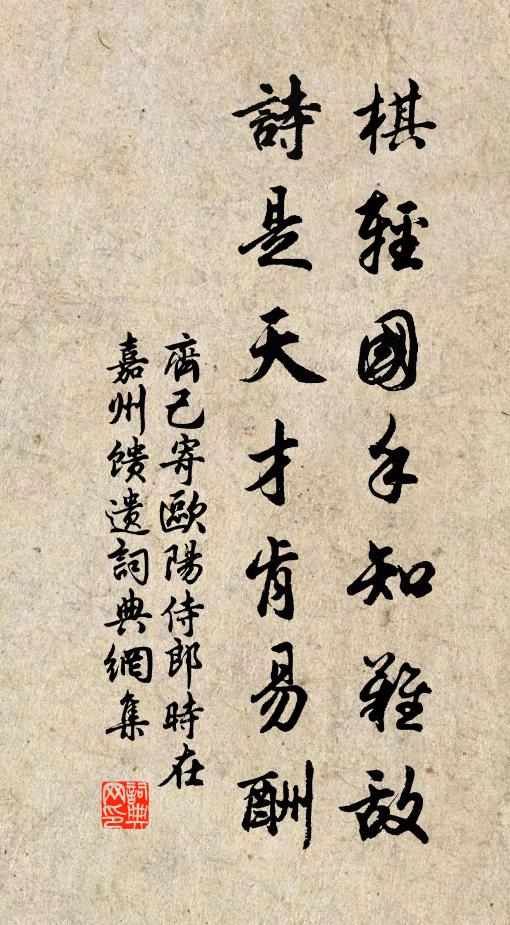 棋輕國手知難敵
詩是天才肯易酬
齊己寄歐陽侍郎時在
嘉州馈遗詞典網集
詞典
网印